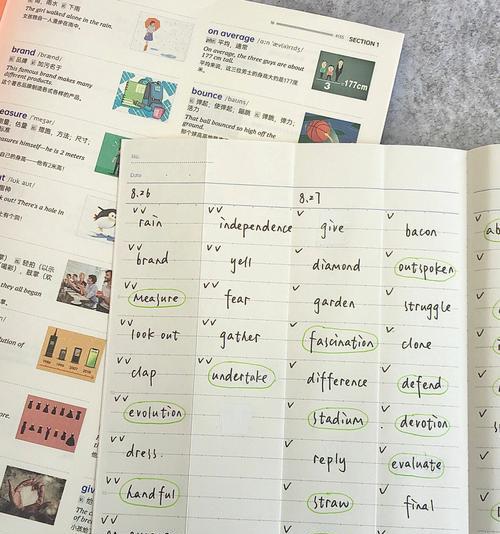 雨水 下雨
The girl walked alone in the rain.
女孩一人漫步在雨中。
brand /brænd/
品牌 加污名于
This famous brand makes many
different products.
这个著名品牌制造各式各样的产品。
easure /ˈmeʒər/
测量, 估量 措施, 方法; 尺寸,
标准
measures himself—he is 2 meters
自己的身高——他有2米高!
/lʊk aʊt/
k out! There's a hole in
轻拍 (以示
they all began
1989 1998 2007 2018
ution of
giv
#035 SECTION 1
on average /ɑːn ˈævərɪdʒ/
平均, 通常
On average, the three guys are about
177 cm tall.
平均来说, 这三位男士的身高大约是177厘
米。
3 177cm
bounce /baʊns/
弹起, 使弹起, 蹦跳 弹跳, 弹力,
活力
That ball bounced so high off the
ground.
No.
Date
8.26
rain
brand
measure
look out
clap
evolution
dress
handful
independence
yell
fear
gather
undertake
8.27
give
diamond
garden
fascination
difference
stadium
reply
straw
bacon
outspoken
struggle
clone
defend
devotion
evaluate
final
ab